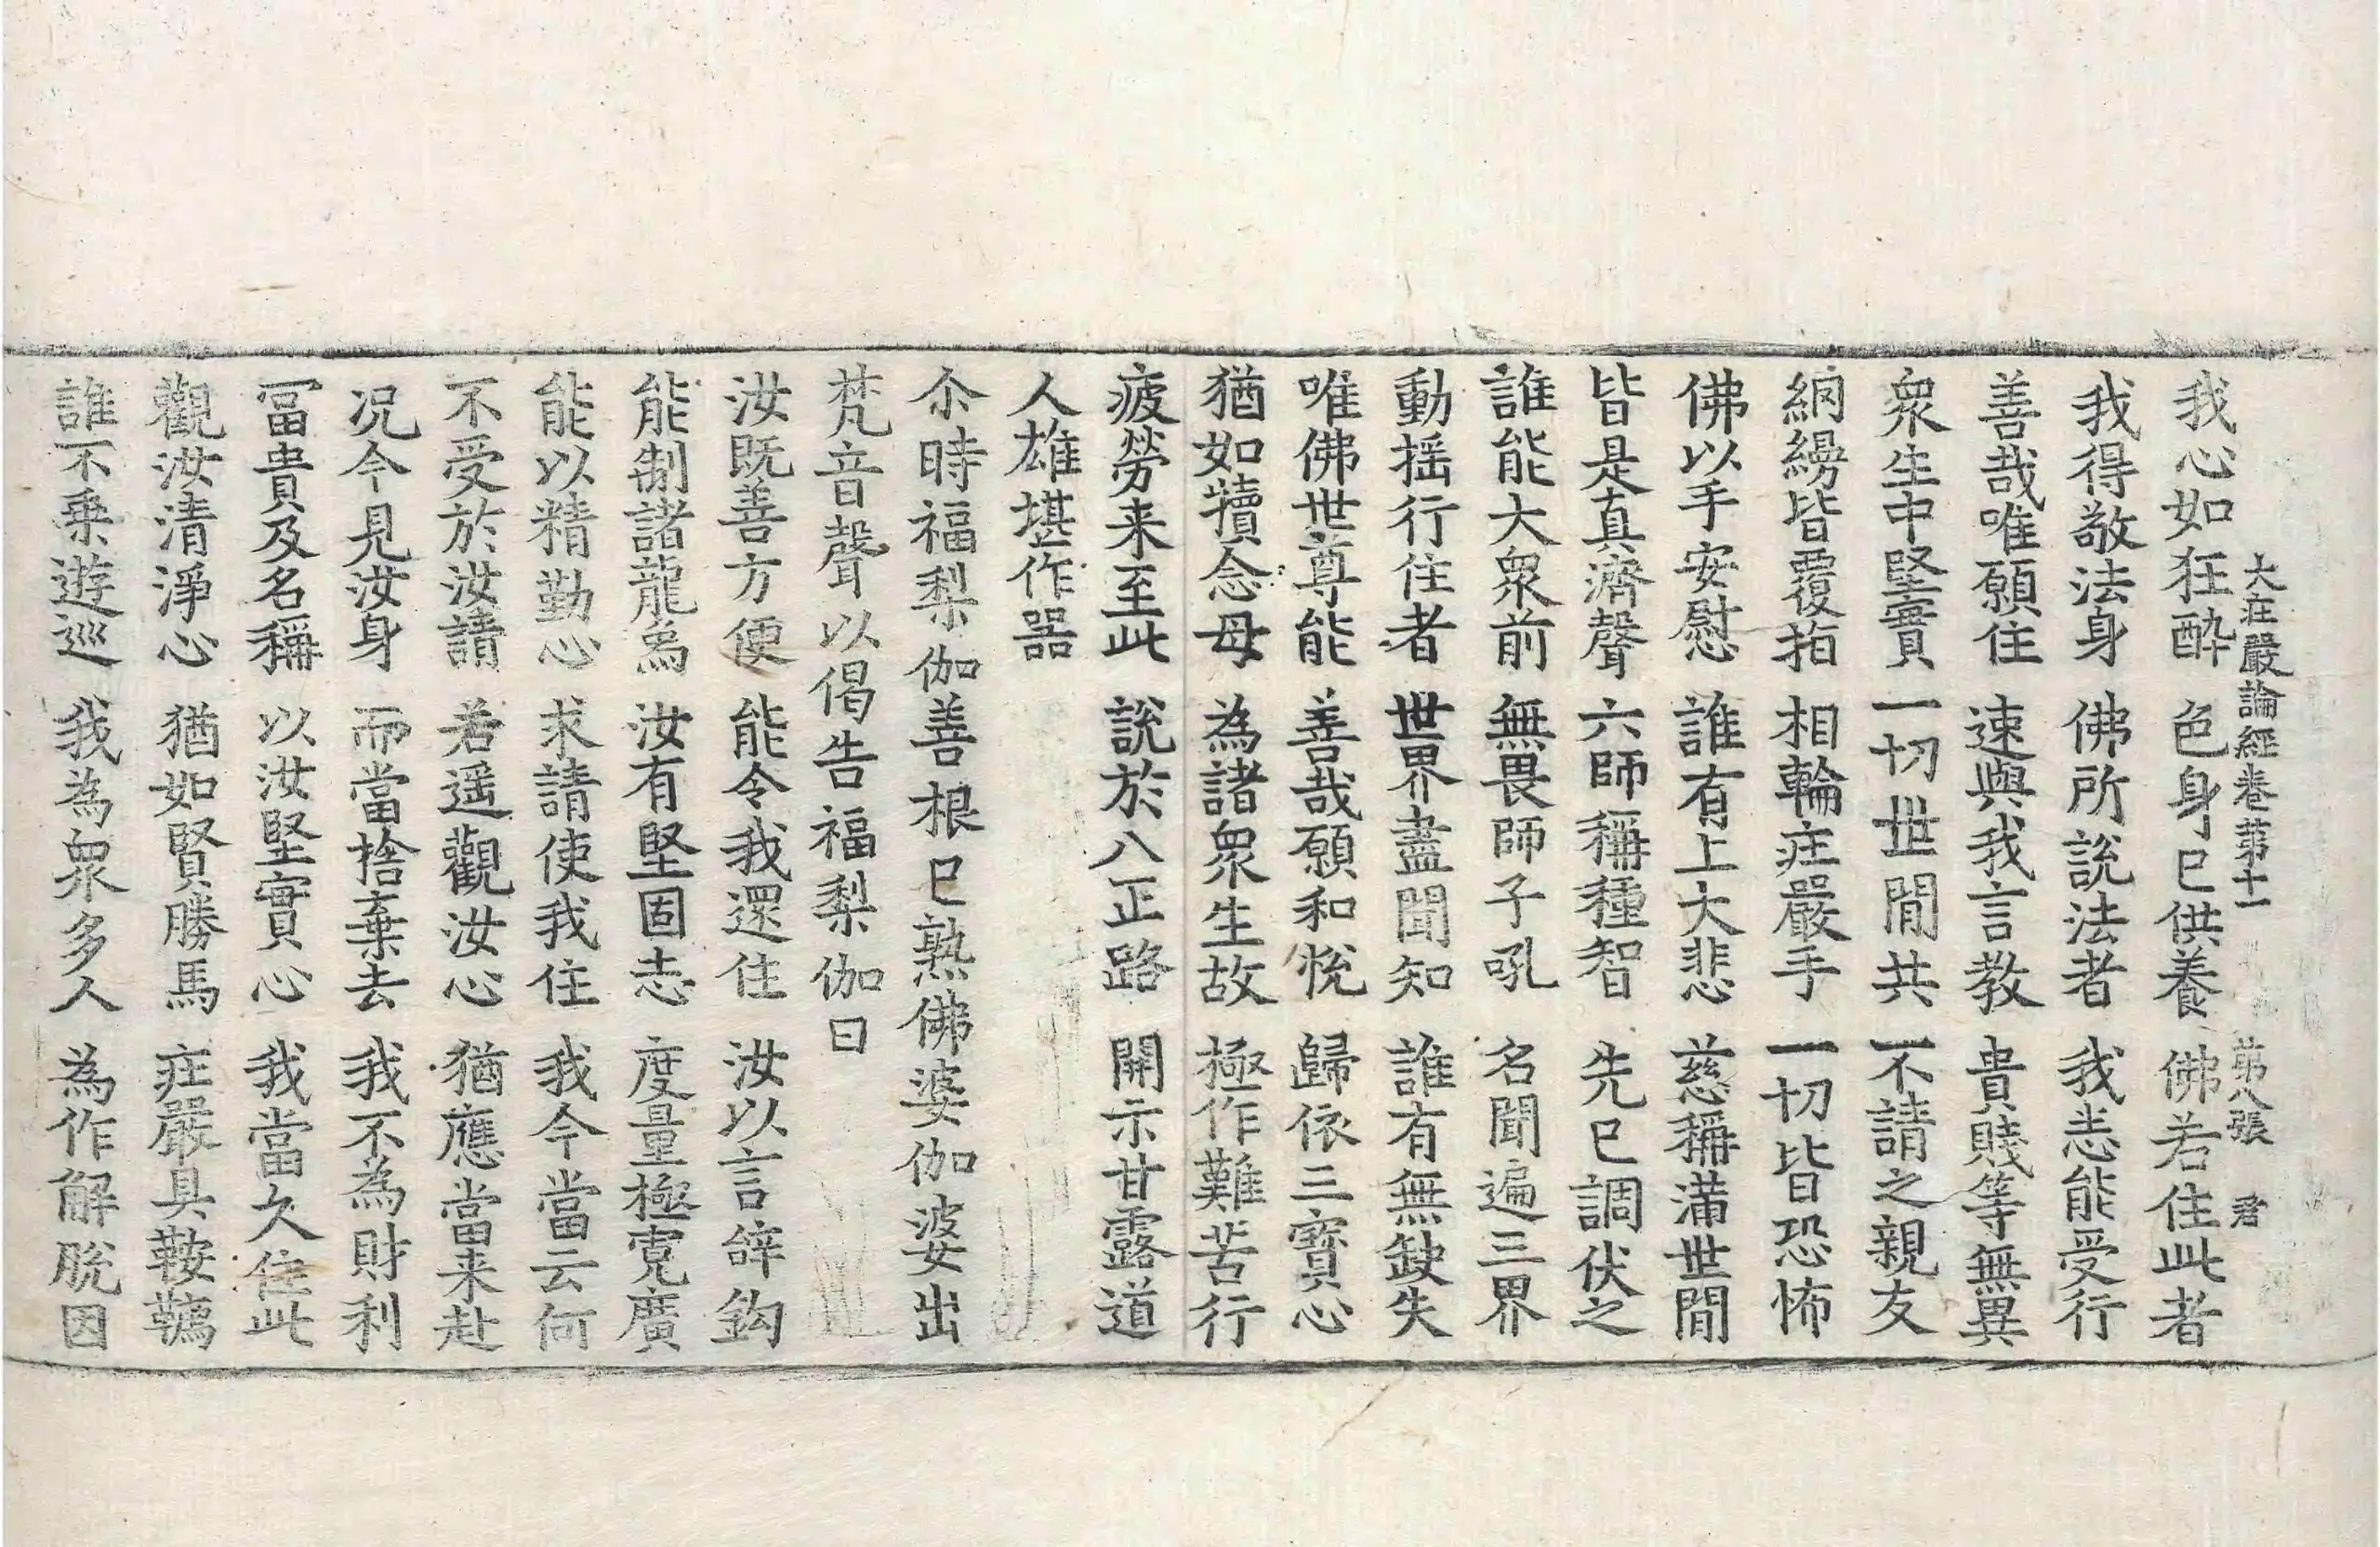 大庄嚴論經卷第十一　第八張　君
我心如狂酔　色身已供養　佛若住此者
我得敬法身　佛所說法者　我恙能受行
善哉唯願住　速與我言教　貴賤等無異
衆生中堅實　一切世間共　不請之親友
網縵皆覆指　相輪庄嚴手　一切皆恐怖
佛以手安慰　誰有上大悲　慈稱滿世間
皆是真濟聲　六師稱種智　先已調伏之
誰能大衆前　無畏師子吼　名聞遍三界
動揺行住者　世界盡聞知　誰有無缺失
唯佛世尊能　善哉願和悅　歸依三寶心
猶如犢念母　為諸衆生故　極作難苦行
疲勞来至此　說於八正路　開示甘露道
人雄堪作器
尒時福梨伽善根已熟佛婆伽婆出
梵音聲以偈告福梨伽曰
汝既善方便　能令我還住　汝以言辝鈎
能制諸龍爲　汝有堅固志　度量極寛廣
能以精勤心　求請使我住　我今當云何
不受於汝請　若遥觀汝心　猶應當来赴
况今見汝身　而當捨棄去　我不為財利
冨貴及名稱　以汝堅實心　我當久住此
觀汝清淨心　猶如賢勝馬　庄嚴具鞍韉
誰不乗遊巡　我為衆多人　為作解脫因